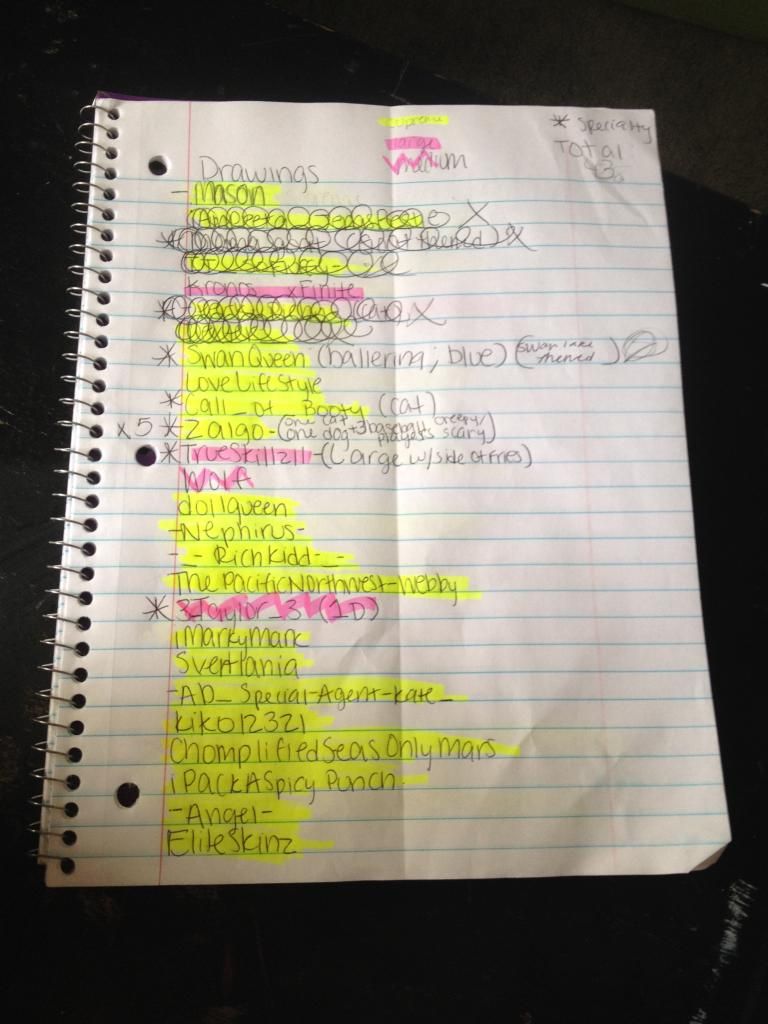 supreme
* Specialty
large
Total
Medium
43
Drawings
- Mason
X
* X
Kronos_xFinite
* (cat) X
* SwanQueen (ballerina; blue) (swan lake themed)
LoveLifeStyle
* Call_of_Booty (cat)
x5 * Zalgo - (one cat, one dog + 3 baseball players creepy/scary)
* TrueSkillzll - (Large w/side of fries)
Wolf
dollqueen
-Nephirus-
-_- RichKidd-_-
The PacificNorthwest-Webby
* 3Taylor_3 (1D)
iMarkyMark
Svertlania
-AD_Special-Agent-Kate_
kiko12321
ChomplifiedSeasOnlyMars
iPackASpicy Punch
-Angel-
EliteSkinz